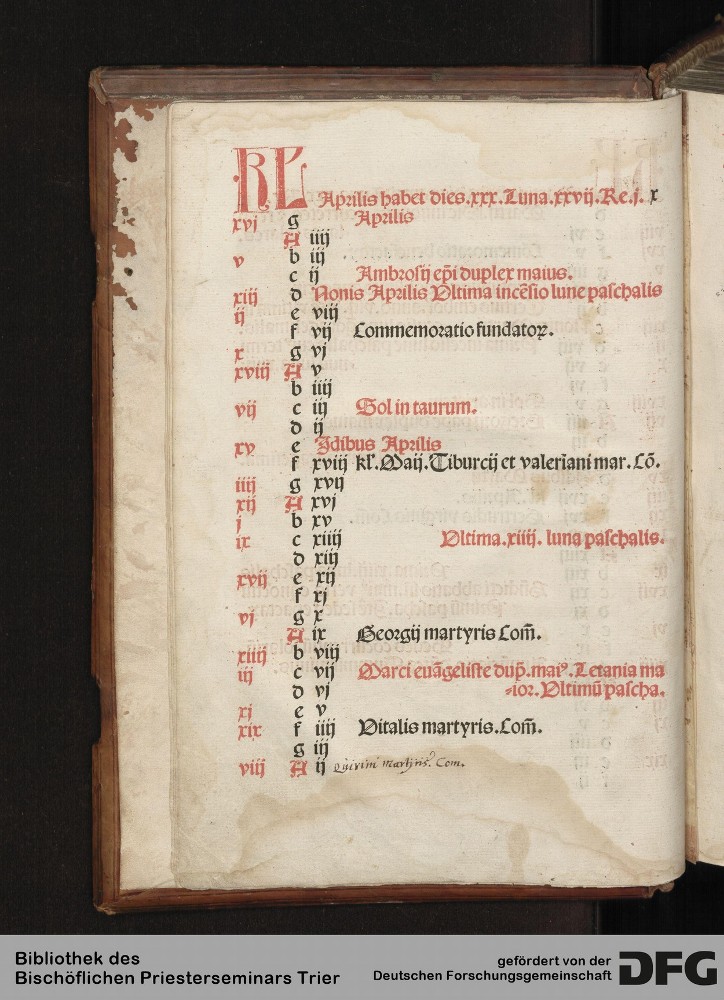 KL
Aprilis habet dies.xxx.Luna.xxvij.Re.j. x
xvj g Aprilis
A iiij
v b iij
c ij Ambrosij ep̄i duplex maius.
xiij d Nonis Aprilis Vltima incēsio lune paschalis
ij e viij
f vij Commemoratio fundatoꝝ.
x g vj
xviij A v
b iiij
vij c iij Sol in taurum.
d ij
xv e Idibus Aprilis
f xviij kl'.Maij.Tiburcij et valeriani mar.Cō.
iiij g xvij
xij A xvj
j b xv
ix c xiiij Vltima.xiiij. luna paschalis.
d xiij
xvij e xij
f xj
vj g x
A ix Georgij martyris Com̄.
xiiij b viij
iij c vij Marci euāgeliste dup̄.maiꝰ.Letania ma
d vj -ior.Vltimū pascha.
xj e v
xix f iiij Vitalis martyris.Com̄.
g iij
viij A ij Quirini martyris. Com.
Bibliothek des
Bischöflichen Priesterseminars Trier
gefördert von der
Deutschen Forschungsgemeinschaft
DFG